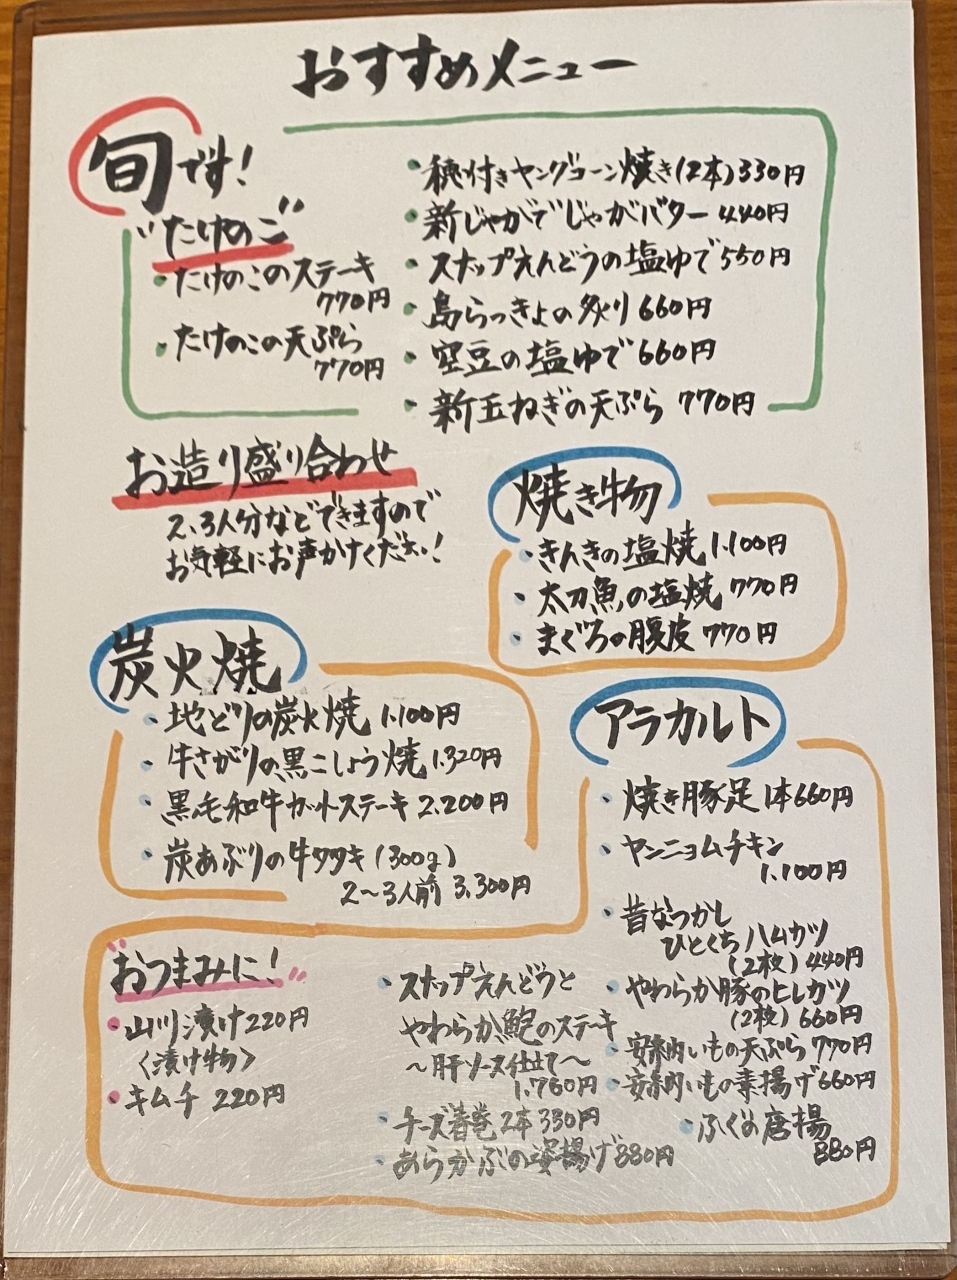 おすすめメニュー
旬です!
"たけのこ"
・たけのこのステーキ
770円
・たけのこの天ぷら
770円
・穂付きヤングコーン焼き(2本)330円
・新じゃがでじゃがバター 440円
・スナップえんどうの塩ゆで 550円
・島らっきょの炙り 660円
・空豆の塩ゆで 660円
・新玉ねぎの天ぷら 770円
お造り盛り合わせ
2、3人分などできますので
お気軽にお声かけください!
焼き物
・きんきの塩焼 1.100円
・太刀魚の塩焼 770円
・まぐろの腹皮 770円
炭火焼
・地どりの炭火焼 1.100円
・牛さがりの黒こしょう焼 1.320円
・黒毛和牛カットステーキ 2.200円
・炭あぶりの牛タタキ(300g)
2〜3人前 3.300円
アラカルト
・焼き豚足 1本660円
・ヤンニョムチキン
1.100円
・昔なつかし
ひとくちハムカツ
(2枚)440円
・やわらか豚のヒレカツ
(2枚)660円
・安納いもの天ぷら 770円
・安納いもの素揚げ 660円
・ふぐの唐揚
880円
"おつまみに!"
・山川漬け 220円
〈漬け物〉
・キムチ 220円
・スナップえんどうと
やわらか鮑のステーキ
〜肝ソース仕立て〜
1.760円
・チーズ春巻 2本 330円
・あらかぶの姿揚げ 880円